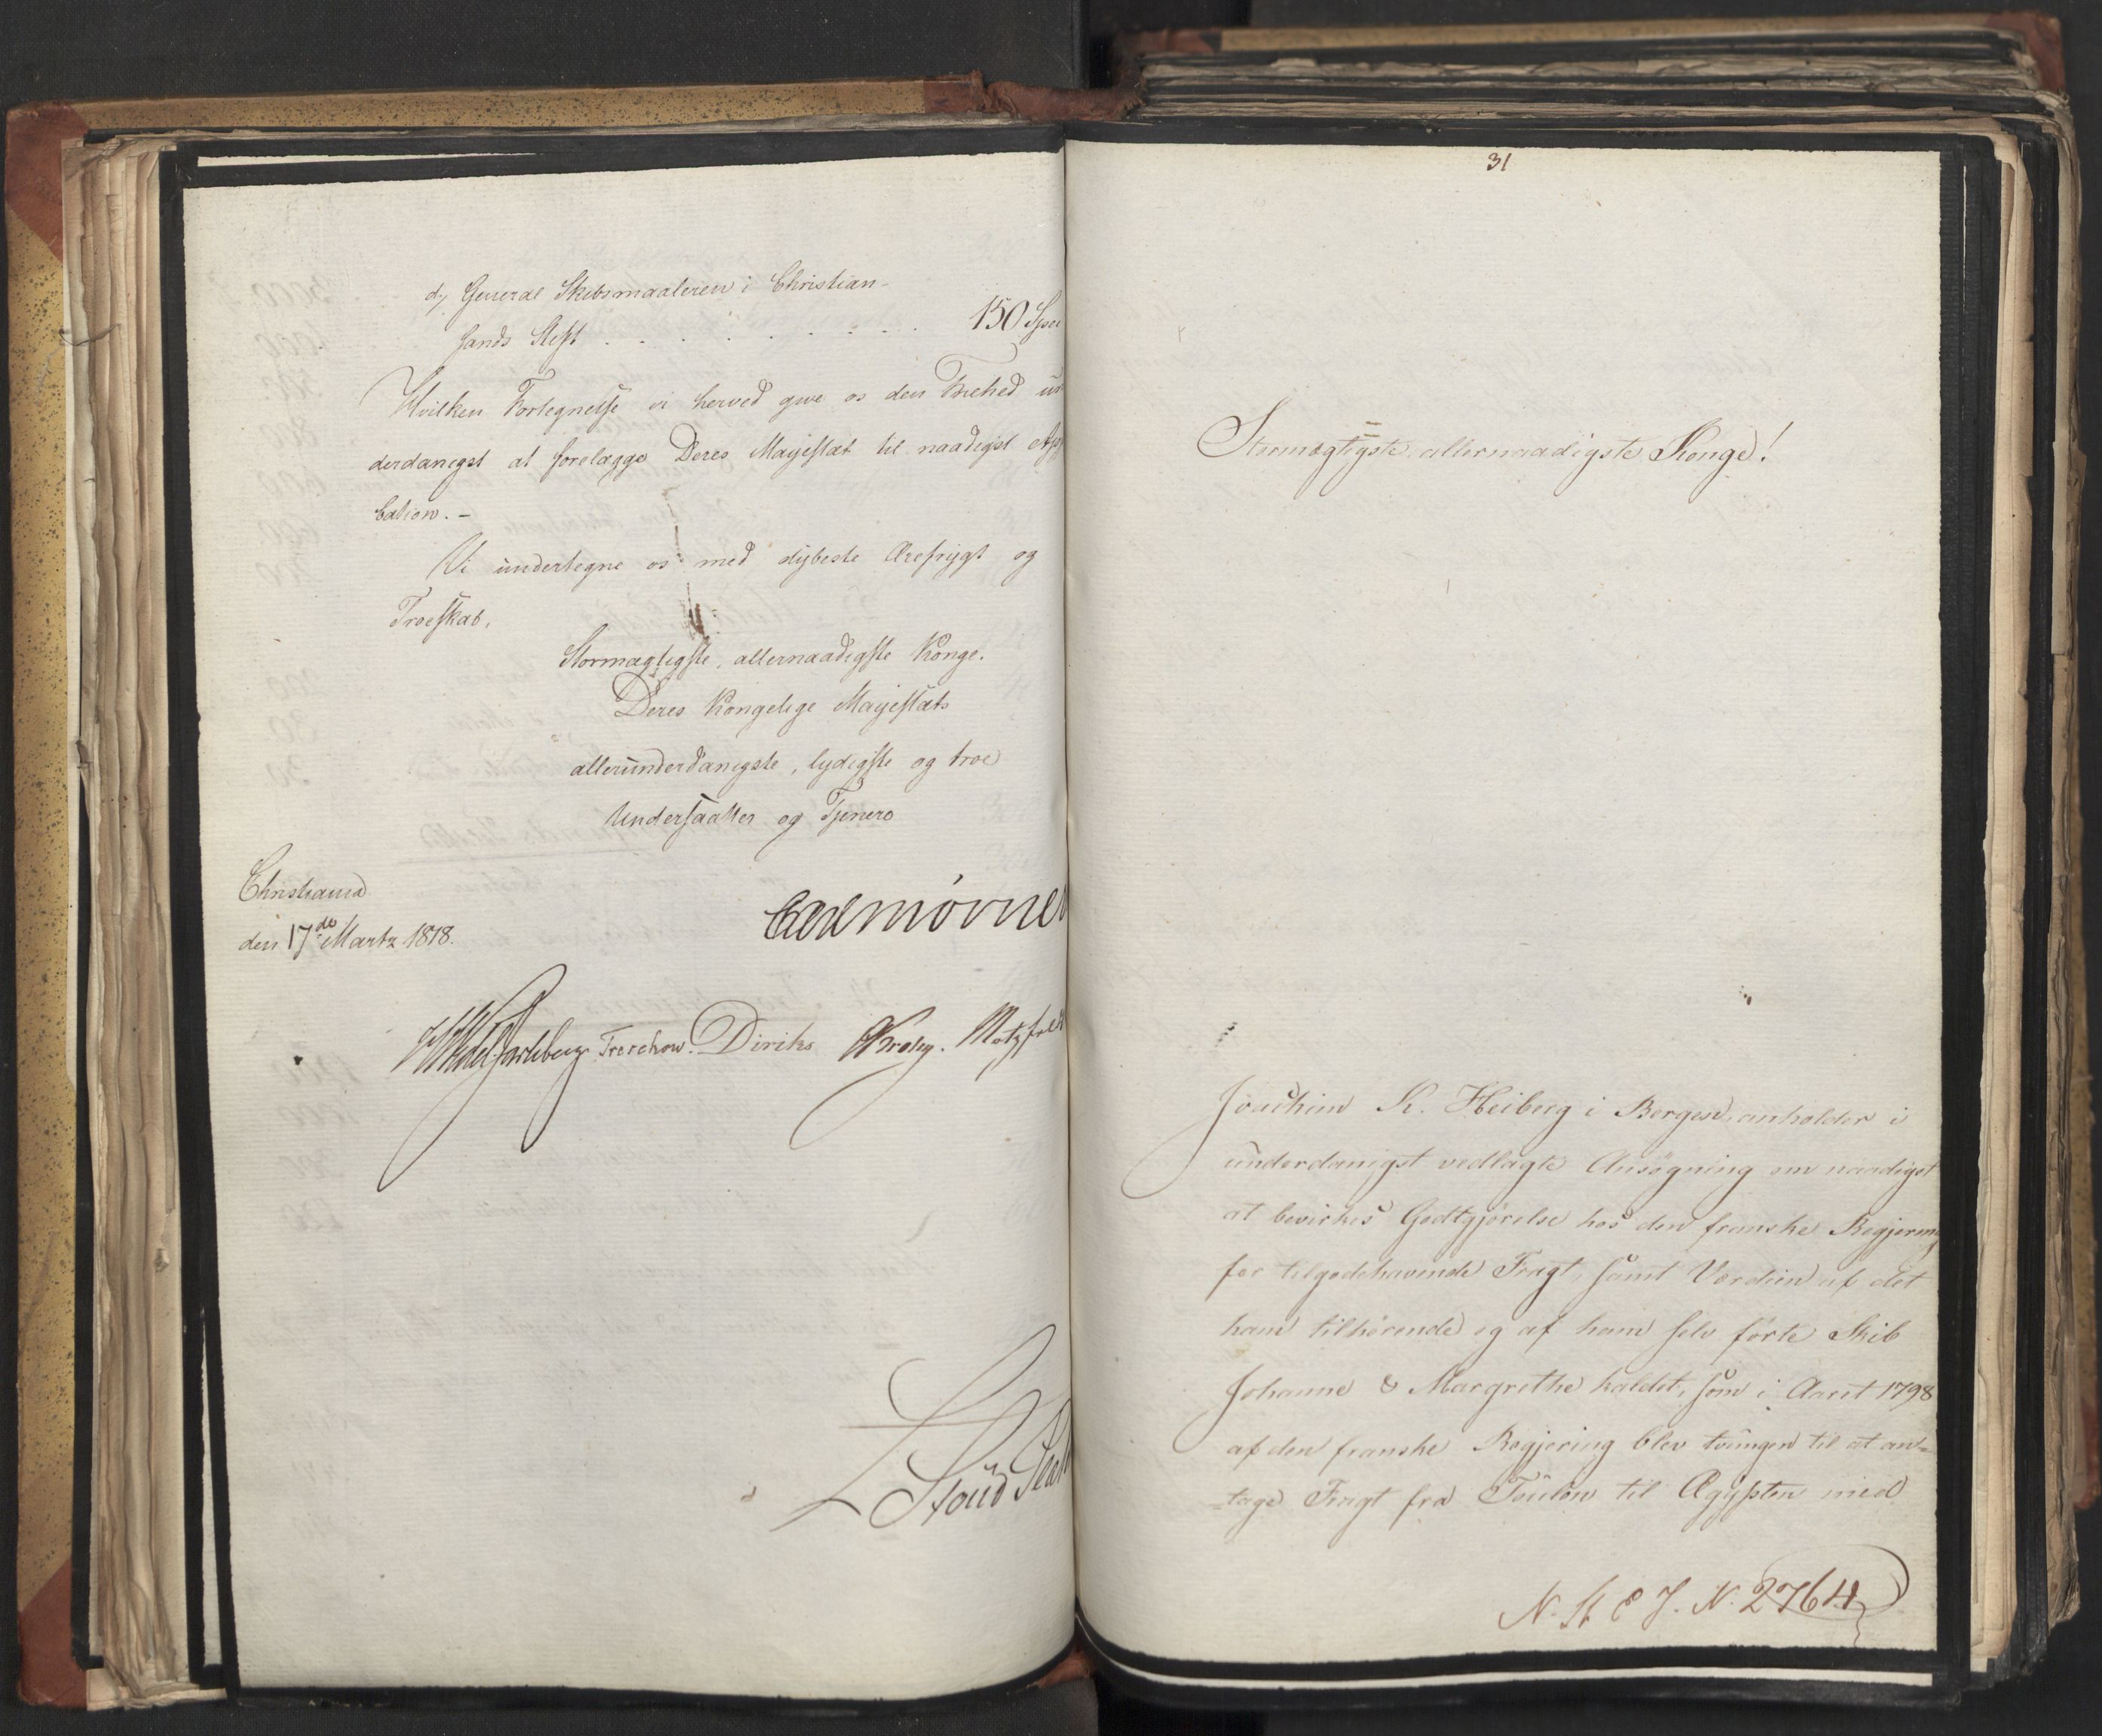 d, General Skibsmaaleren i Christian-
sands Stift . . . . . . . 150 Spec
Hvilken Fortegnelse vi herved give os den Friehed un
derdanigst at forelægge Deres Majestæt til naadigst App
bation. -
Vi undertegne os med dybeste Ærefrygt og
Troeskab,
Stormægtigste, allernaadigste Konge.
Deres Kongelige Majestæts
allerunderdanigste, lydigste og troe
Undersaatter og Tjenere
Christiania
den 17de Martz 1818.
Mörner
Wedel Jarlsberg. Treschow. Diriks Krohg. Motzfeldt
31
Stormægtigste allernaadigste Konge!
Joachim K. Heiberg i Bergen, anholder i
underdanigst vedlagte Ansøgning om naadigst
at bevirkes Godtgjørelse hos den franske Regjering
for tilgodehavende Fragt, samt Værdien af det
ham tilhørende og af ham selv førte Skib
Johanne & Margrethe kaldet, som i Aaret 1798
af den franske Regjering blev tvungen til at an-
-tage Fragt fra Toulon til Ægypten med
N. St E J. N. 2764